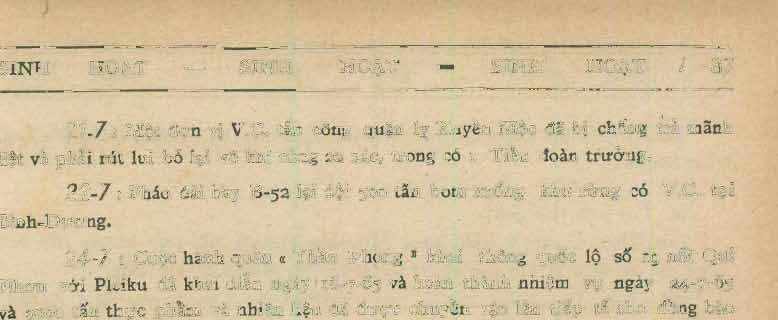 SINH HOẠT — SINH HOẠT — SINH HOẠT / 87
.7 : Một đơn vị V.C. tấn công quận lỵ Xuyên Mộc đã bị chống trả mãnh
liệt và phải rút lui bỏ lại vũ khí cùng xác, trong có 1 Tiểu đoàn trưởng.
22-7 : Pháo đài bay B-52 lại dội 500 tấn bom xuống khu rừng có V.C. tại
Bình-Dương.
24-7 : Cuộc hành quân « Thần Phong » khai thông quốc lộ số 19 nối Qui
Nhơn với Pleiku đã khai diễn ngày 16-7-65 và hoàn thành nhiệm vụ ngày 24-7-65
và tấn thực phẩm và nhiên liệu đã được chuyển vận lên tiếp tế cho đồng bào